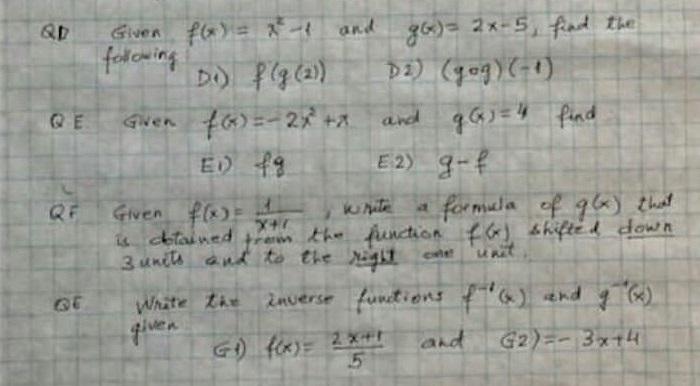 QD Given f(x) = x² - 1 and g(x) = 2x-5, find the
following
D1) f(g(2)) D2) (gog)(-1)
QE Given f(x) = -2x² + x and g(x) = 4 find
E1) fg E2) g-f
QF Given f(x) = 1/(x+1), write a formula of g(x) that
is obtained from the function f(x) shifted down
3 units and to the right one unit.
QG Write the inverse functions f⁻¹(x) and g⁻¹(x)
given
G1) f(x) = (2x+1)/5 and G2) = - 3x+4